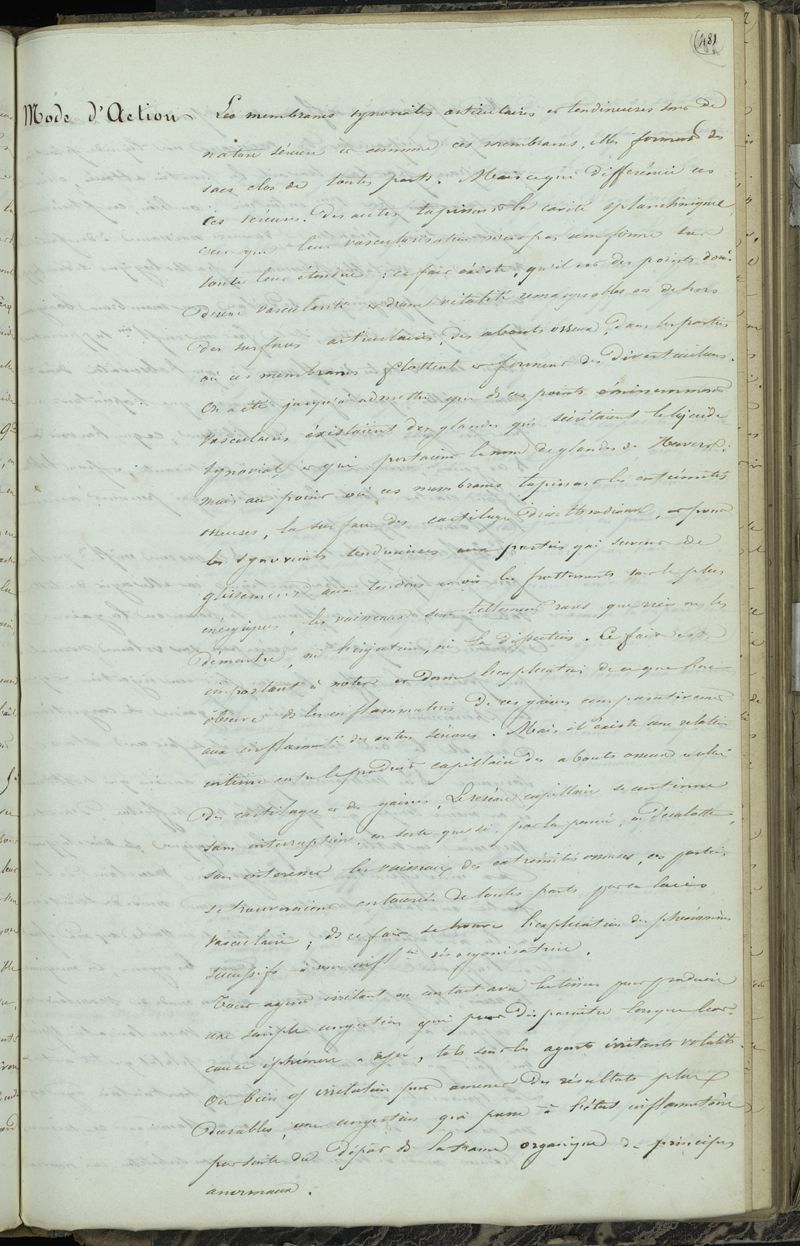 481
Mode d'Action Les membranes synoviales articulaires et tendineuses sont de
nature séreuse et comme ces membranes, elles forment des
sacs clos de toutes parts. Mais ce qui différencie ces
des autres tapissant la cavité splanchnique,
c'est que leur vascularisation n'est pas uniforme dans
toute leur étendue : ce fait existe, qu'il est des points doués
d'une vascularité et d'une vitalité remarquables en dehors
des surfaces articulaires, des abouts osseux, dans les parties
où ces membranes flottent et forment des diverticulums.
On a été jusqu'à admettre que dans ces points éminemment
vasculaires existaient des glandes qui sécrétaient le liquide
synovial, et qui portaient le nom de glandes de Havers.
mais au point où ces membranes tapissent les extrémités
osseuses, la surface des cartilages d'incrustation, et pour
les synoviales tendineuses aux parties qui servent de
glissement aux tendons et où les frottements sont le plus
énergiques, les vaisseaux sont tellement rares que rien ne les
démontre, ni l'injection, ni la dissection. Ce fait est
important à noter et donne l'explication de ce que l'on
observe dans les inflammations de ces gaines comparativement
aux des autres séreuses. Mais il existe une relation
intime entre le capillaire des abouts osseux et celui
des cartilages et des gaines. Le réseau capillaire se continue
sans interruption, en sorte que si, par la pensée, on
sans intéresser les vaisseaux des extrémités osseuses, ces parties
se trouveraient entourées de toutes parts par ce lacis
vasculaire ; dans ce fait se trouve l'explication des phénomènes
successifs à une désorganisatrice.
Tout agent irritant en contact avec les tissus peut produire
une simple congestion qui peut disparaître lorsque leur
cause éphémère a agi, tels sont les agents irritants volatils.
Ou bien irritation peut amener des résultats plus
durables, une congestion qui passe à l'état inflammatoire
par suite du dépôt dans la trame organique de principes
anormaux.